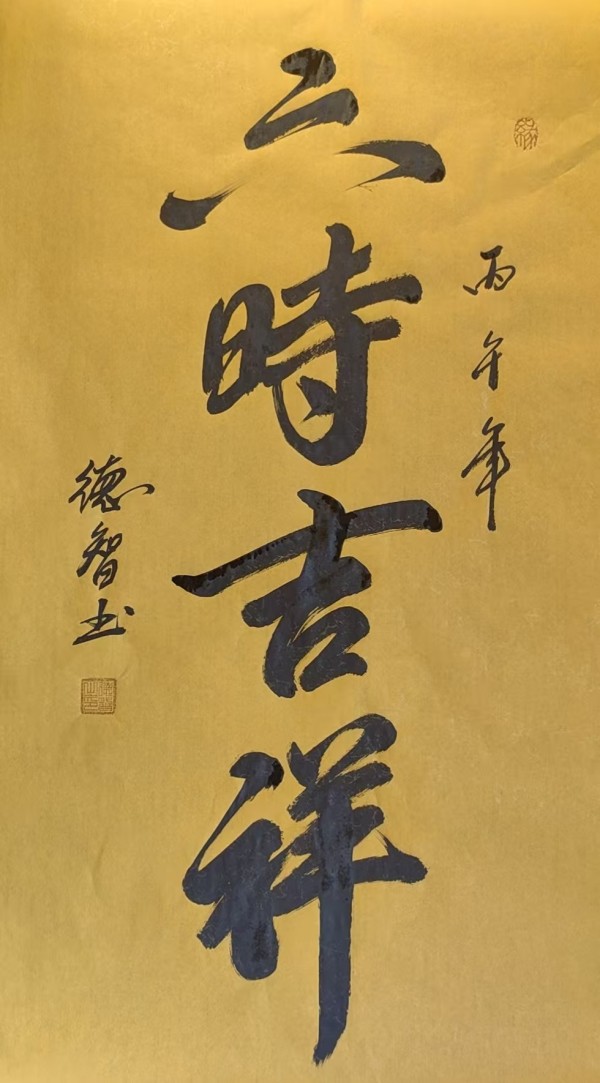 丙午年
六時吉祥
德智书